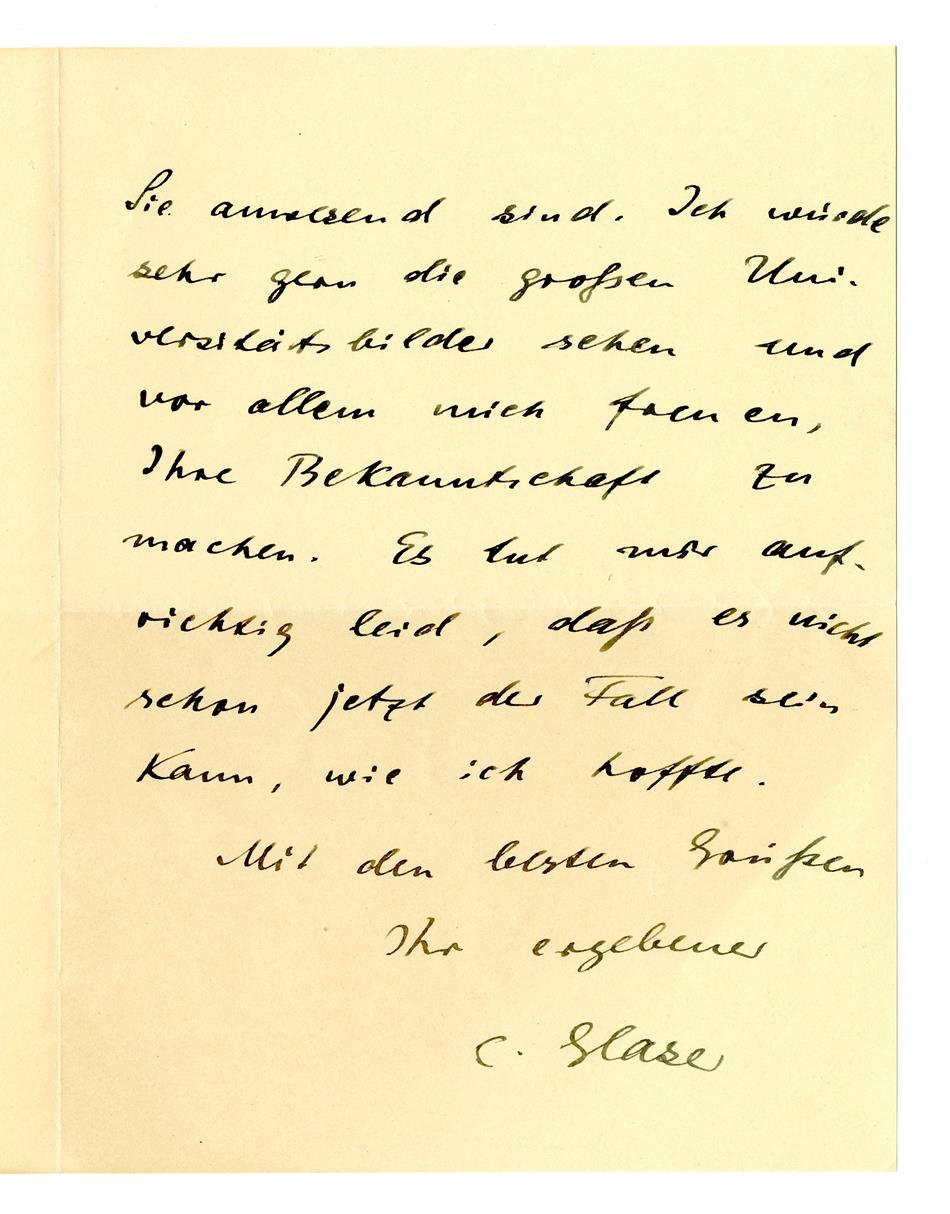 Sie anwesend sind. Ich würde
sehr gern die großen Uni-
versitätsbilder sehen und
vor allem mich freuen,
Ihre Bekanntschaft zu
machen. Es tut mir auf-
richtig leid, daß es nicht
schon jetzt der Fall sein
kann, wie ich hoffte.
Mit den besten Grüßen
Ihr ergebener
C. Glaser